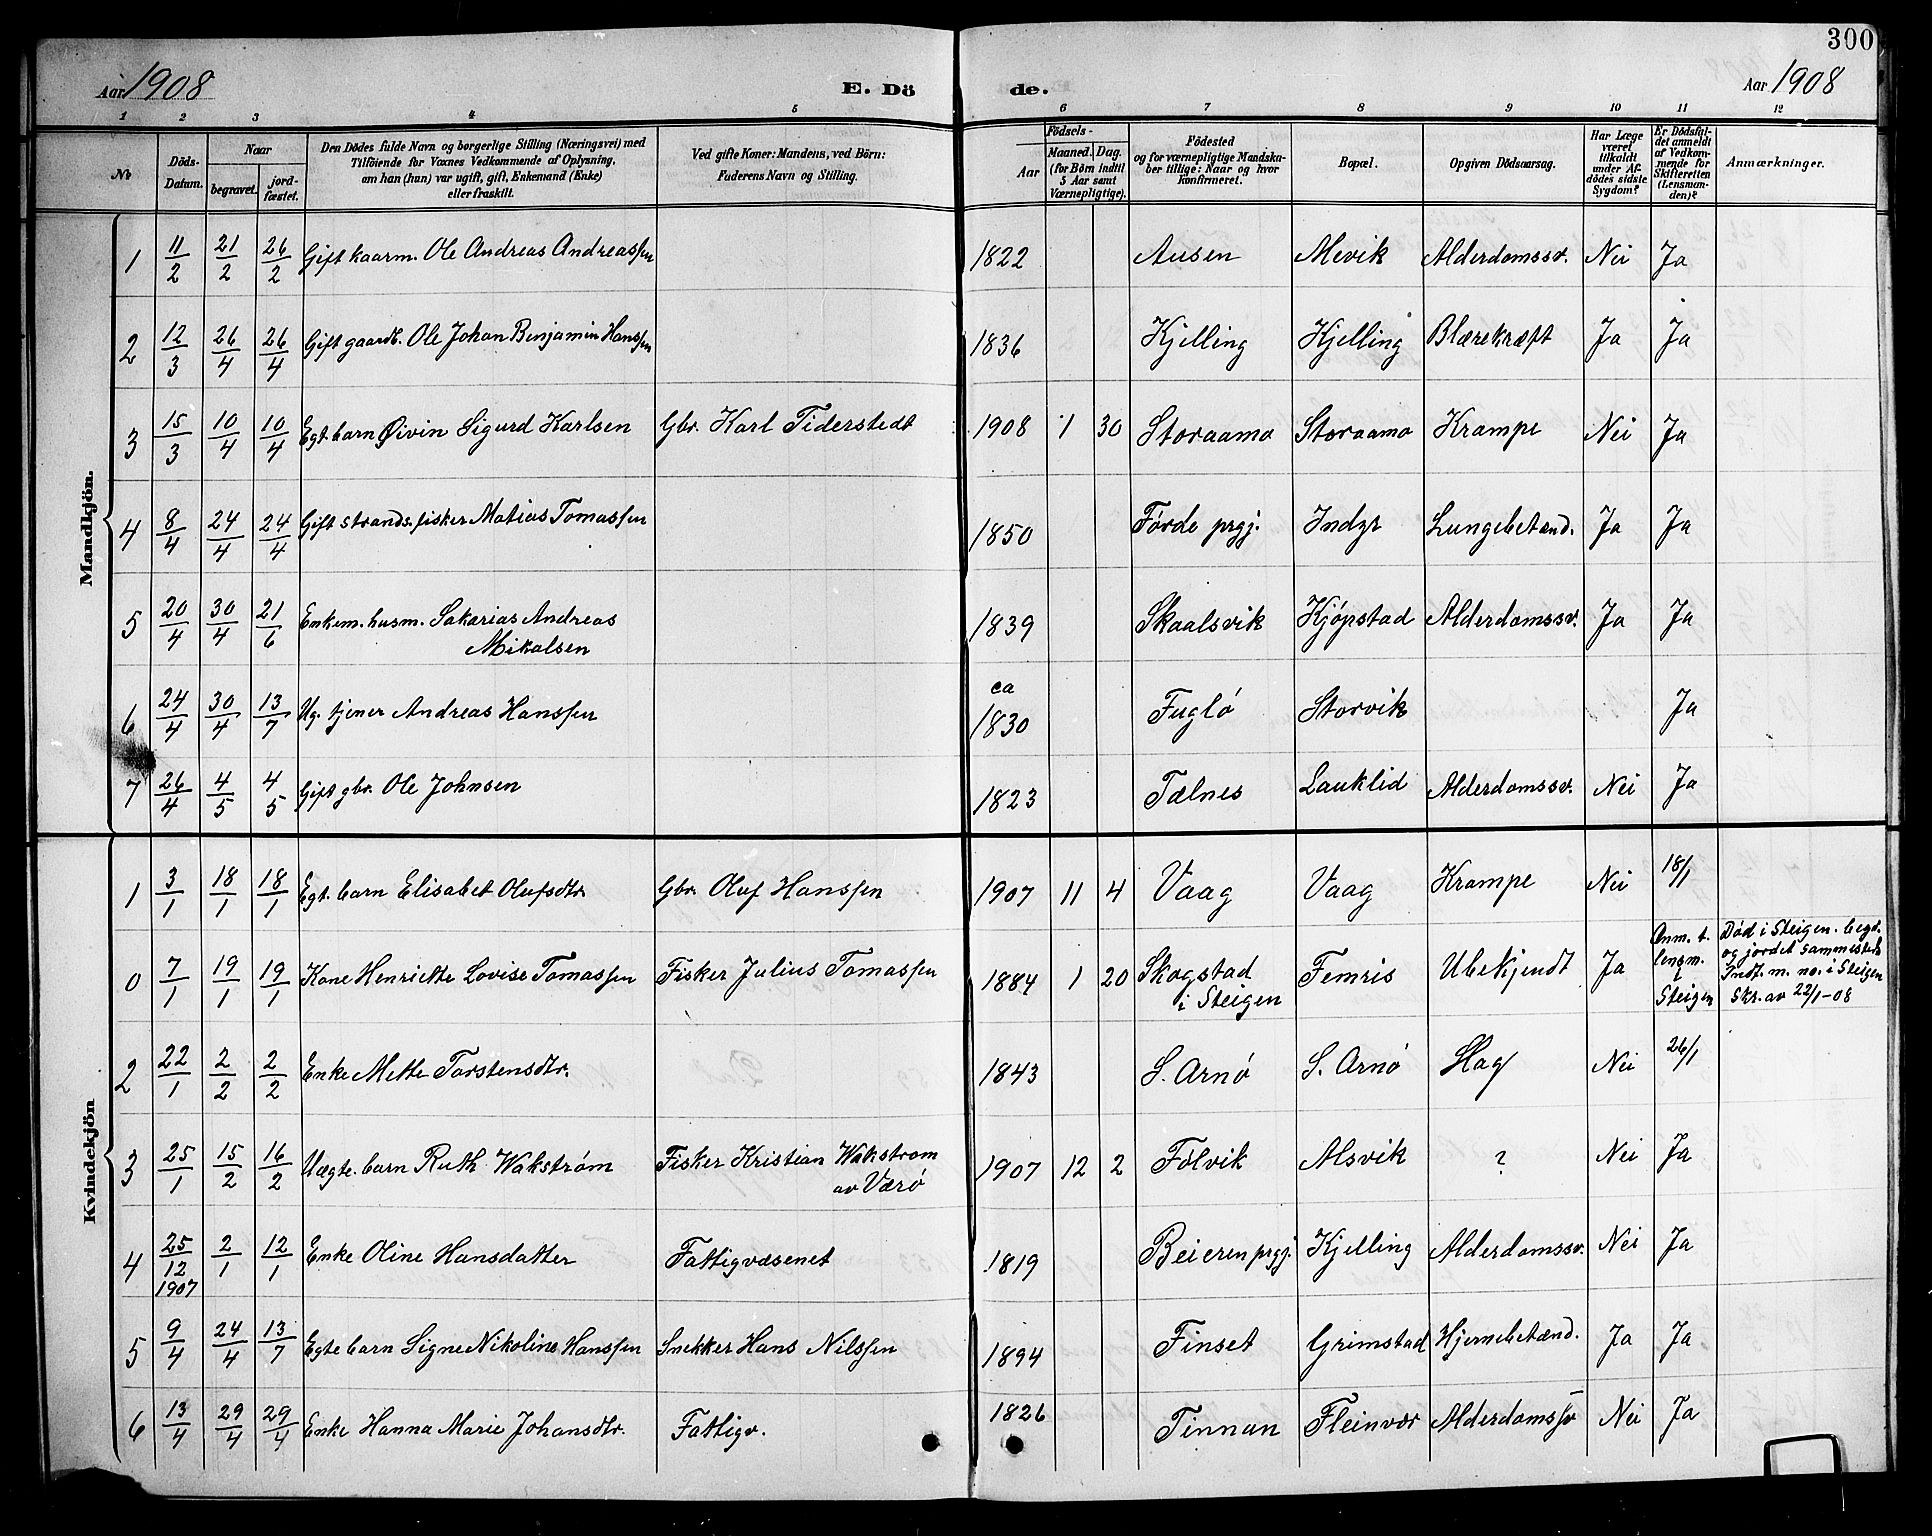 300
Aar 1908 E. Dö de. Aar 1908
1 2 3 4 5 6 7 8 9 10 11 12
No
Döds-Datum.
Naar
begravet.
jordfæstet.
Den Dödes fulde Navn og borgerlige Stilling (Næringsvei) med
Tilföiende for Voxnes Vedkommende af Oplysning,
om han (hun) var ugift, gift, Enkemand (Enke)
eller fraskilt.
Ved gifte Koner: Mandens, ved Börn:
Faderens Navn og Stilling.
Födsels-
Aar
Maaned. Dag.
(for Börn indtil
5 Aar samt
Værnepligtige).
Födested
og for værnepligtige Mandskaber tillige: Naar og hvor
konfirmeret.
Bopæl.
Opgiven Dödsaarsag.
Har Læge
været
tilkaldt
under Afdödes sidste
Sygdom?
Er Dödsfaldet anmeldt
af Vedkommende for
Skifteretten
(Lensmanden)?
Anmærkninger.
Mandkjön.
1 11/2 21/2 26/2 Gift kaarm. Ole Andreas Andreassen 1822 Ausen Mevik Alderdomssv. Nei Ja
2 12/3 26/4 26/4 Gift gaardb. Ole Johan Benjamin Hanssen 1836 Kjelling Kjelling Blærekræft Ja Ja
3 15/3 10/4 10/4 Egt. barn Øivin Sigurd Karlsen Gbr. Karl Tiderstedt 1908 1 30 Storaamo Storaamo Krampe Nei Ja
4 8/4 24/4 24/4 Gift strands. fisker Matias Tomassen 1850 Førde prgj. Indyr Lungebetænd. Ja Ja
5 20/4 30/4 21/6 Enkem. husm. Sakarias Andreas
Mikalsen 1839 Skaalsvik Kjøpstad Alderdomssv. Ja Ja
6 24/4 30/4 13/7 Ug. tjener Andreas Hanssen ca
1830 Fuglø Storvik Ja
7 26/4 4/5 4/5 Gift gbr. Ole Johnsen 1823 Tælnes Lauklid Alderdomssv. Nei Ja
Kvindekjön
1 3/1 18/1 18/1 Egt. barn Elisabet Olufsdtr. Gbr. Oluf Hanssen 1907 11 4 Vaag Vaag Krampe Nei 18/1
0 7/1 19/1 19/1 Kone Henriette Lovise Tomassen Fisker Julius Tomassen 1884 1 20 Skogstad
i Steigen Femris Ubekjendt Ja Anm. t.
lensm.
i
Steigen Død i Steigen. begr.
og jordet sammesteds
Indf. m. no. i Steigen
Skr. av 22/1-08
2 22/1 2/2 2/2 Enke Mette Torstensdtr. 1843 S. Arnø S. Arnø Slag Nei 26/1
3 25/1 15/2 16/2 Uægte. barn Ruth Wakstrøm Fisker Kristian Wakstrom
av Værø 1907 12 2 Følvik Alsvik ? Nei Ja
4 25/12 1907 2/1 12/1 Enke Oline Hansdatter Fattigvæsenet 1819 Beieren prgj. Kjelling Alderdomssv. Nei Ja
5 9/4 24/4 13/7 Egte barn Signe Nikoline Hanssen Snekker Hans Nilssen 1894 Finset Grimstad Hjernebetænd. Ja Ja
6 13/4 29/4 29/4 Enke Hanna Marie Johansdtr. Fattigv. 1826 Finnan Fleinvær Alderdomssv Nei Ja